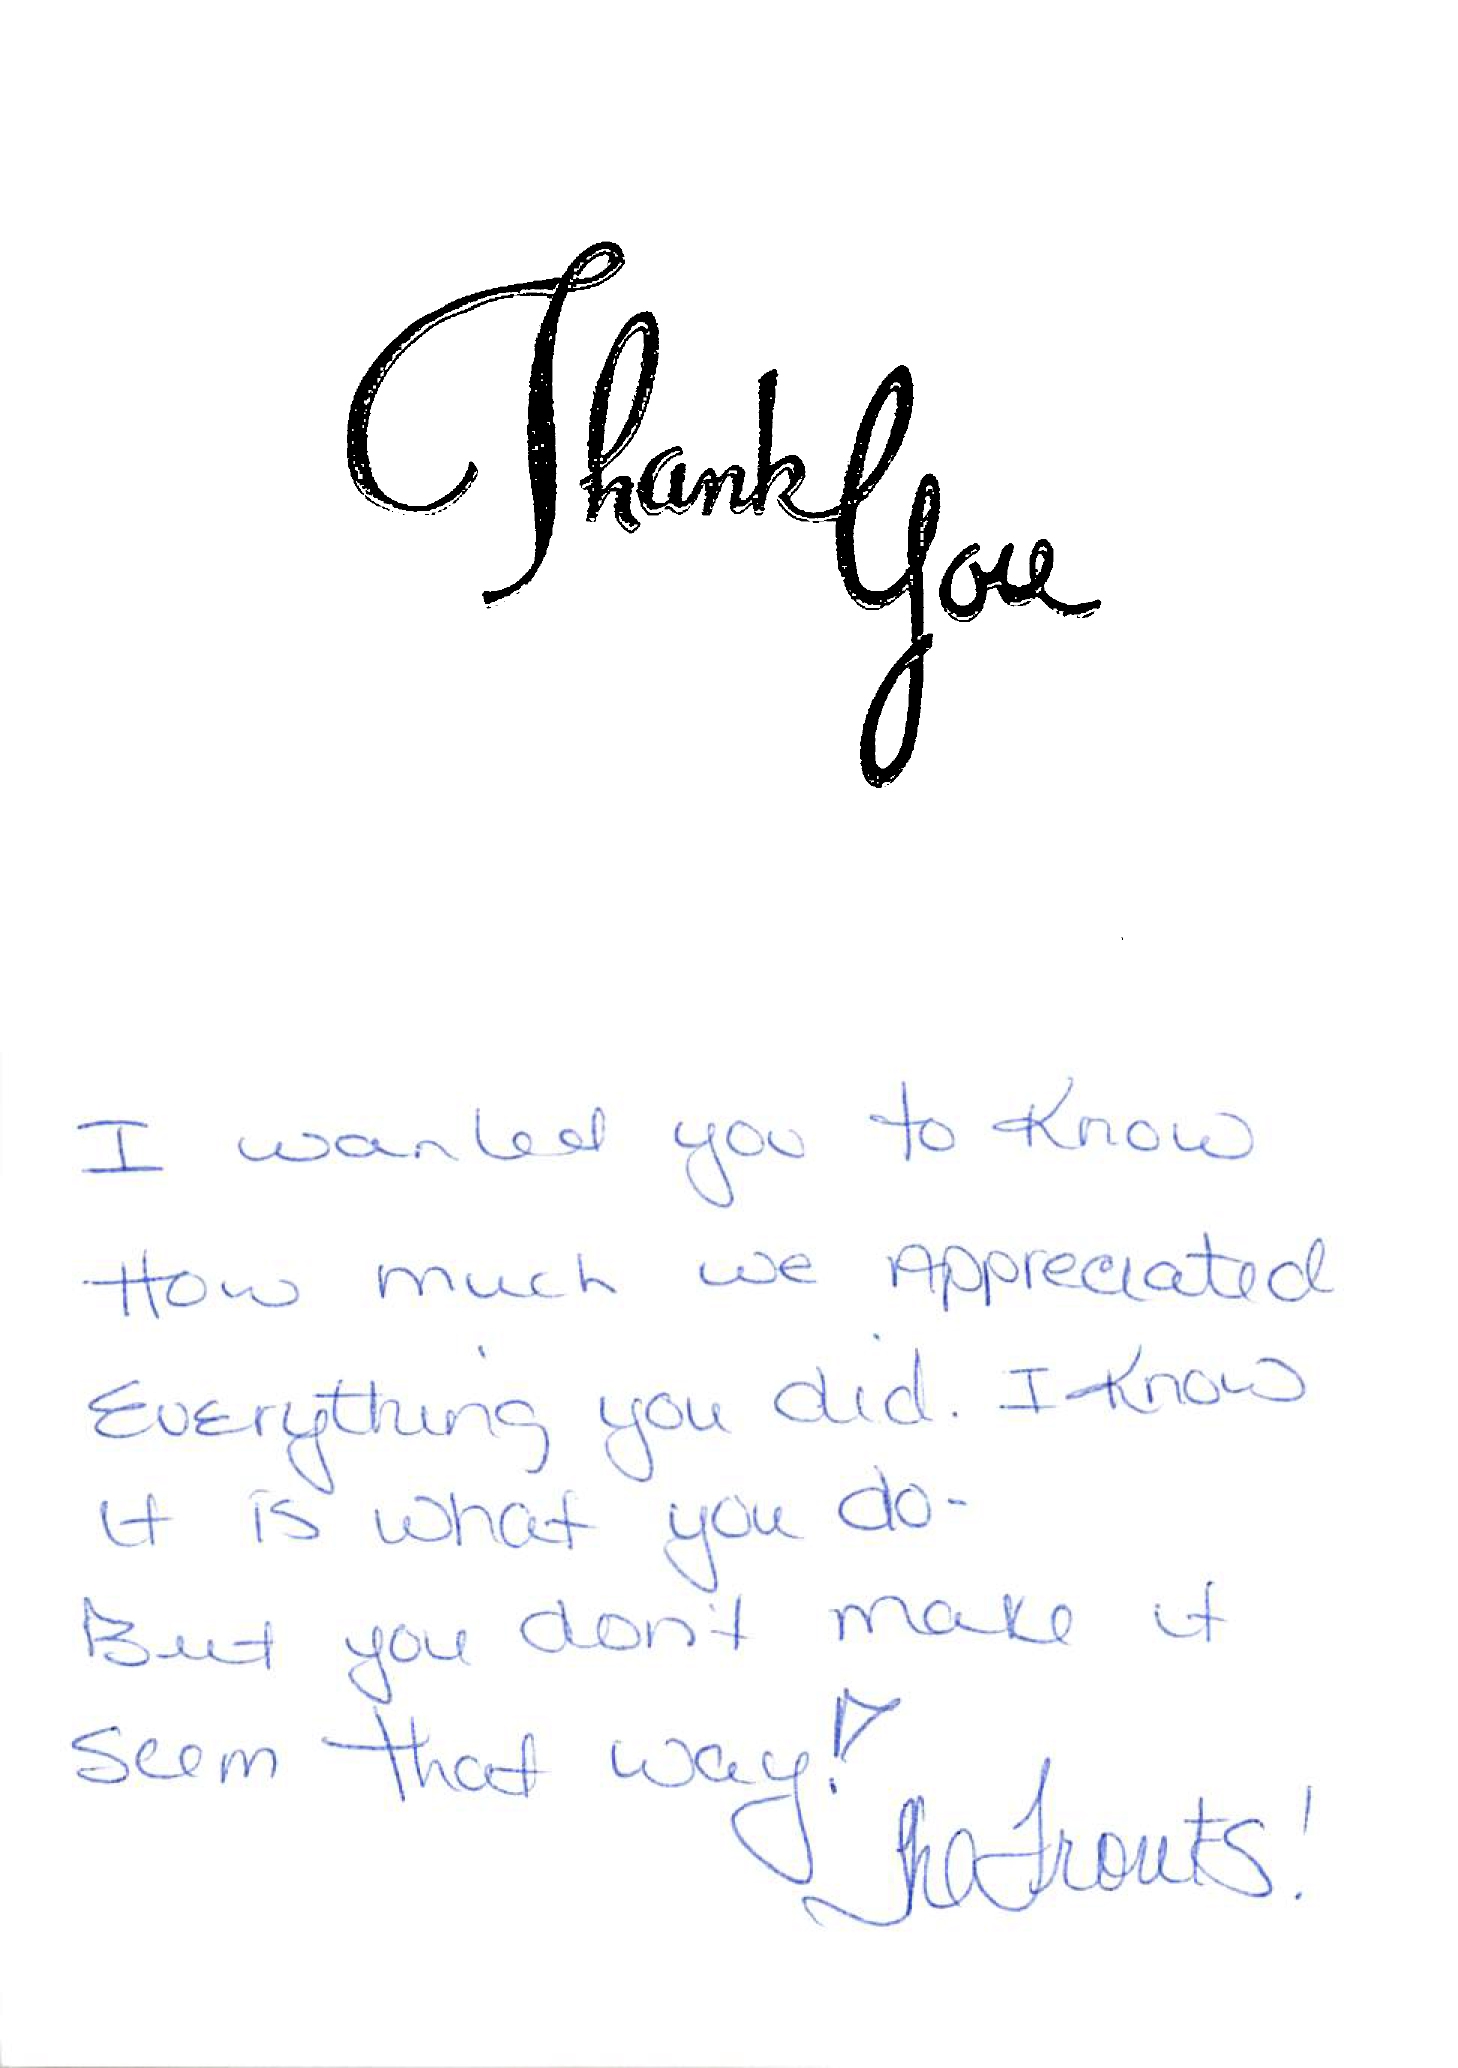 Thank You
I wanted you to know
How much we Appreciated
Everything you did. I know
it is what you do-
But you don't make it
seem that way!
The Trouts!